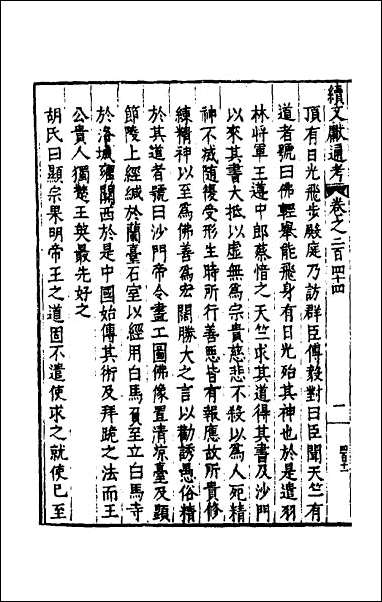 續文獻通考 卷之二百四十四 一
頂有日光飛步殿庭乃訪群臣傅毅對曰臣聞天竺有
道者號曰佛輕舉能飛身有日光殆其神也於是遣羽
林將軍王遵中郎蔡愔之天竺求其道得其書及沙門
以來其書大抵以虛無為宗貴慈悲不殺以為人死精
神不滅隨復受形生時所行善惡皆有報應故所貴修
練精神以至為佛善為宏闊勝大之言以勸誘愚俗精
於其道者號曰沙門帝令畫工圖佛像置清凉臺及顯
節陵上經緘於蘭臺石室以經用白馬負至立白馬寺
於洛城雍關西於是中國始傳其術及拜跪之法而王
公貴人獨楚王英最先好之
胡氏曰顯宗果明帝王之道固不遣使求之就使已至